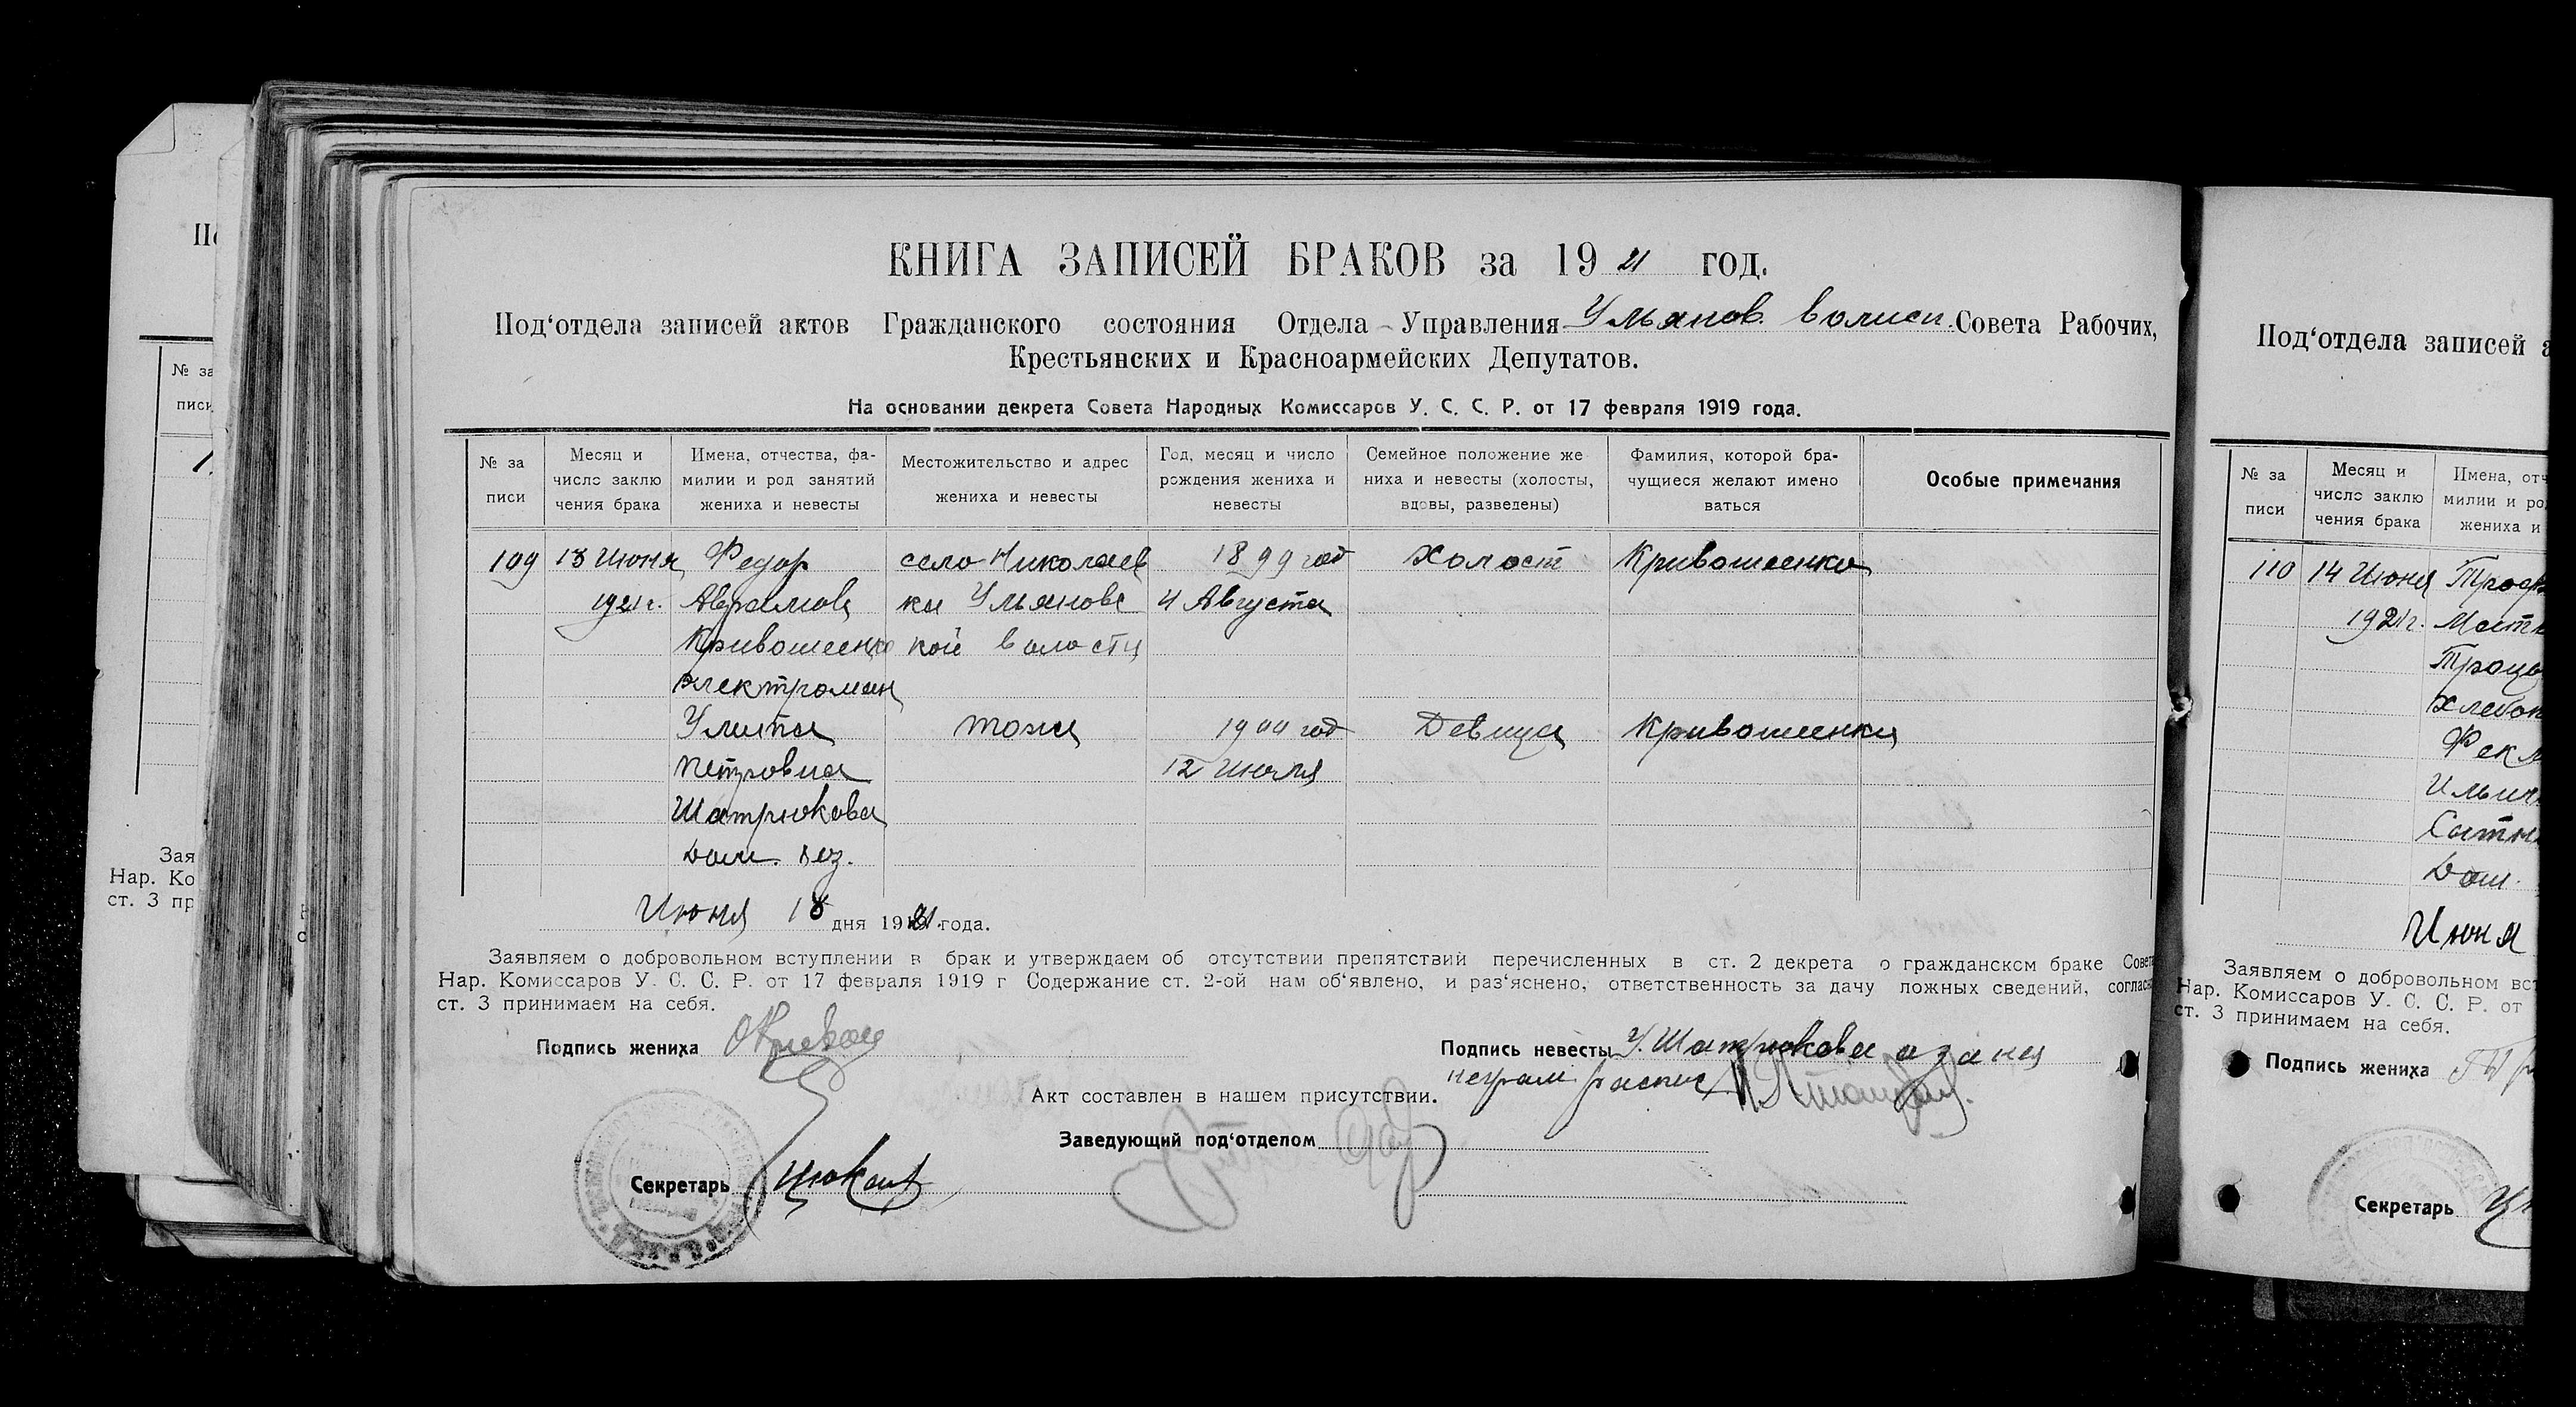 КНИГА ЗАПИСЕЙ БРАКОВ за 1921 год.
Под‘отдела записей актов Гражданского состояния Отдела Управления Ульянов. волисп. Совета Рабочих,
Крестьянских и Красноармейских Депутатов.
На основании декрета Совета Народных Комиссаров У. С. С. Р. от 17 февраля 1919 года.
№ за писи
Месяц и число заклю чения брака
Имена, отчества, фа- милии и род занятий жениха и невесты
Местожительство и адрес жениха и невесты
Год, месяц и число рождения жениха и невесты
Семейное положение же ниха и невесты (холосты, вдовы, разведены)
Фамилия, которой бра- чущиеся желают имено ваться
Особые примечания
109 18 Июня Федор село Николаев 1899 год Холост Кривошеенко
1921 г. Аврамов ки Ульяновс 4 Августа
Кривошеенко кой волости
электромен
Улита тоже 1900 год Девица Кривошеенко
Петровна 12 Июля
Шатрюкова
дом. хоз.
Июня 18 дня 1921 года.
Заявляем о добровольном вступлении в брак и утверждаем об отсутствии препятствий перечисленных в ст. 2 декрета о гражданском браке Совета
Нар. Комиссаров У. С. С. Р. от 17 февраля 1919 г Содержание ст. 2-ой нам об‘явлено, и раз‘яснено, ответственность за дачу ложных сведений, согласно
ст. 3 принимаем на себя.
Подпись жениха
Подпись невесты У. Шатрюкова а за нея
неграм. распис
Акт составлен в нашем присутствии.
Заведующий под‘отделом
Секретарь
№ за
писи
Зая
Нар. Ко
ст. 3 пр
Под‘отдела записей а
№ за писи
Месяц и число заклю чения брака
Имена, отч милии и ро жениха и
110 14 Июня Троф
1921 г. Матв
Троц
Хлебоп
Фекл
Ильич
Сотн
Дом.
Июня
Заявляем о добровольном вст
Нар. Комиссаров У. С. С. Р. от
ст. 3 принимаем на себя.
Подпись жениха
Секретарь